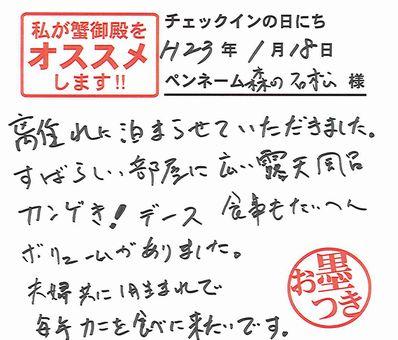 私が蟹御殿を
オススメ
します!!
チェックインの日にち
H23年 1月18日
ペンネーム 森の石松 様
離れに泊まらせていただきました。
すばらしい部屋に広い露天風呂
カンゲキ！デース 食事もたいへん
ボリュームがありました。
夫婦共に1月生まれで
毎年カニを食べに来たいです。
お墨つき